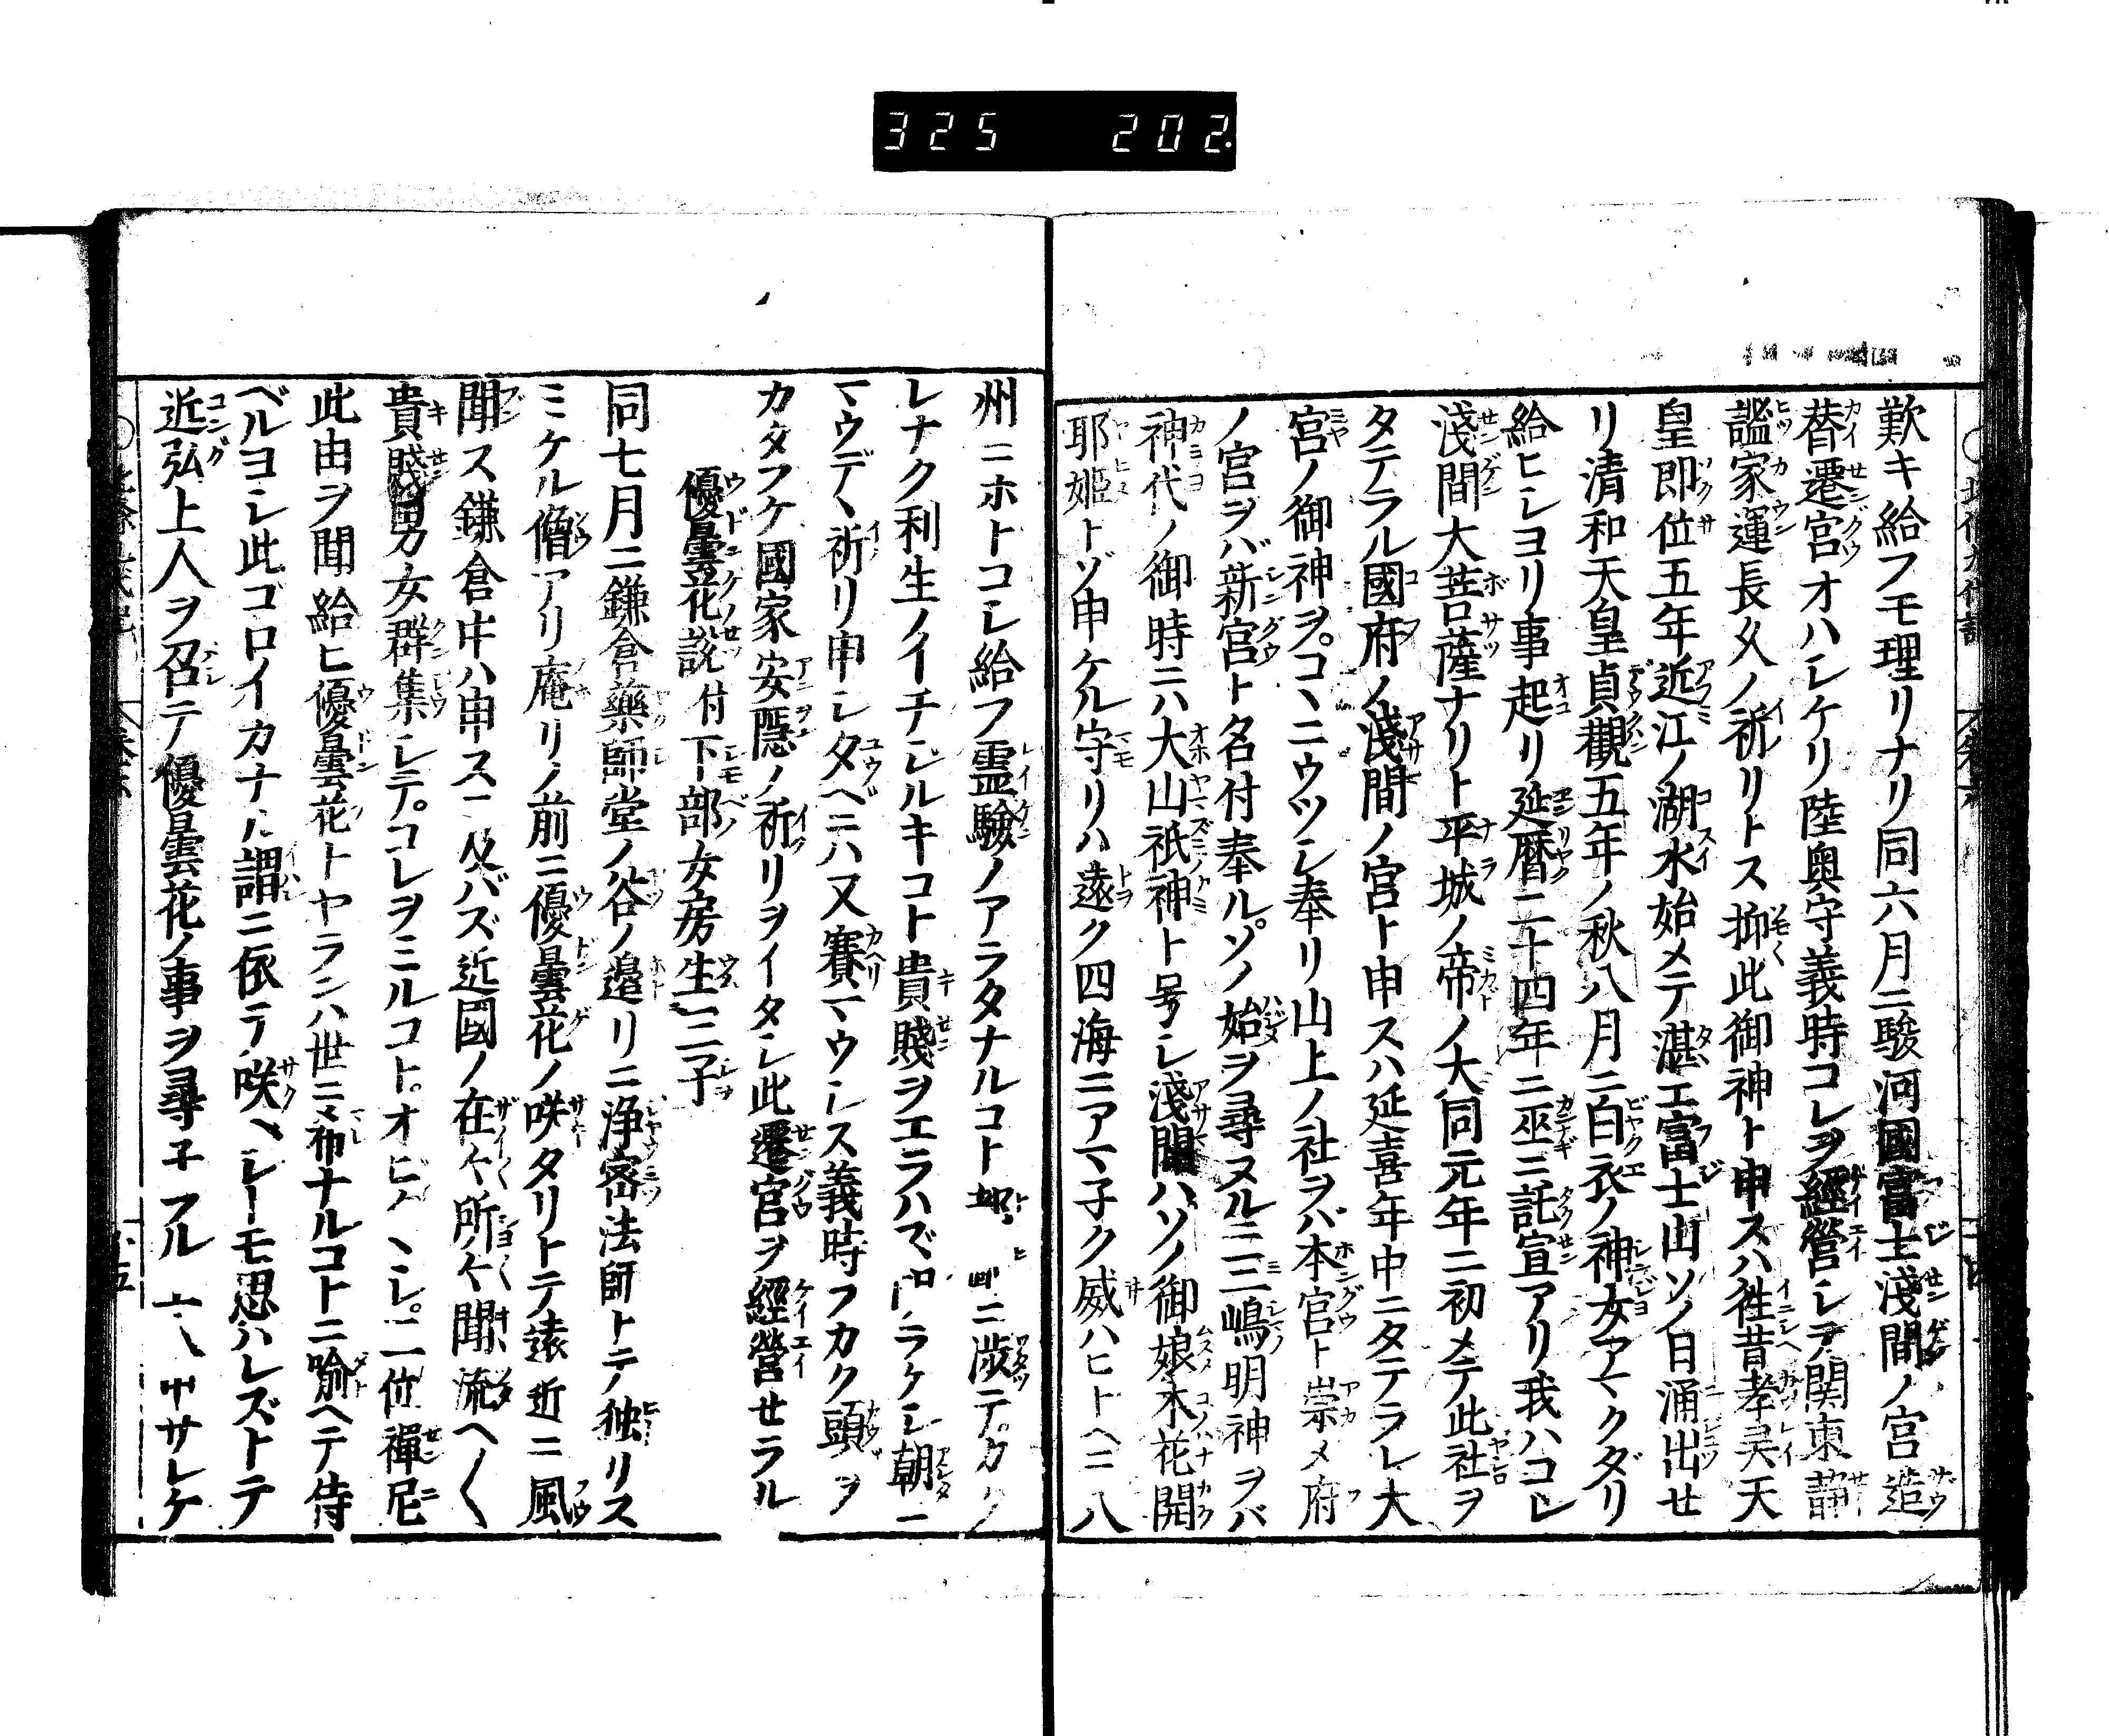 325 202
歎キ給フモ理リナリ同六月ニ駿河國富士淺間ノ宮造
替遷宮オハレケリ陸奥守義時コレヲ經營レテ関東静
謐家運長久ノ祈リトス抑此御神ト申スハ徃昔孝㚑天
皇即位五年近江ノ湖水始メテ湛エ富士山ソノ日涌出セ
リ清和天皇貞觀五年ノ秋八月ニ白衣ノ神女アマクダリ
給ヒシヨリ事起リ延暦二十四年ニ巫ニ託宣アリ我ハコレ
淺間大菩薩ナリト平城ノ帝ノ大同元年ニ初メテ此社ヲ
タテラル國府ノ淺間ノ宮ト申スハ延喜年中ニタテラレ大
宮ノ御神ヲコヽニウツシ奉リ山上ノ社ヲバ本宮ト崇メ府
ノ宮ヲバ新宮ト名付奉ルソノ始ヲ尋ヌルニ三嶋明神ヲバ
神代ノ御時ニハ大山祇神ト号シ淺間ハソノ御娘木花開
耶姫トゾ申ケル守リハ遠ク四海ニアマ子ク威ハヒトヘニ八
州ニホトコシ給フ霊驗ノアラタナルコト
レナク利生ノイチシルキコト貴賤ヲエラハズ ラケシ朝ニ
マウデヽ祈リ申シタベニハ又賽マウシス義時フカク頭ヲ
カタフケ國家安隠ノ祈リヲイタシ此遷宮ヲ經營セラル
優曇花説付下部女房生三子
同七月ニ鎌倉藥師堂ノ谷ノ邉リニ浄密法師トテ独リス
ミケル僧アリ庵リノ前ニ優曇花ノ咲タリトテ遠近ニ風
聞ス鎌倉中ハ申スニ及バズ近國ノ在々所々聞流ヘ〱
貴賤男女群集シテコレヲミルコトオビヽシ二位禪尼
此由ヲ聞給ヒ優曇花トヤランハ世ニ希ナルコトニ喩ヘテ侍
ベルヨシ此ゴロイカナル謂ニ依テ咲ヽシーモ思ハレズトテ
近弘上人ヲ召テ優曇花ノ事ヲ尋子フル サレケ